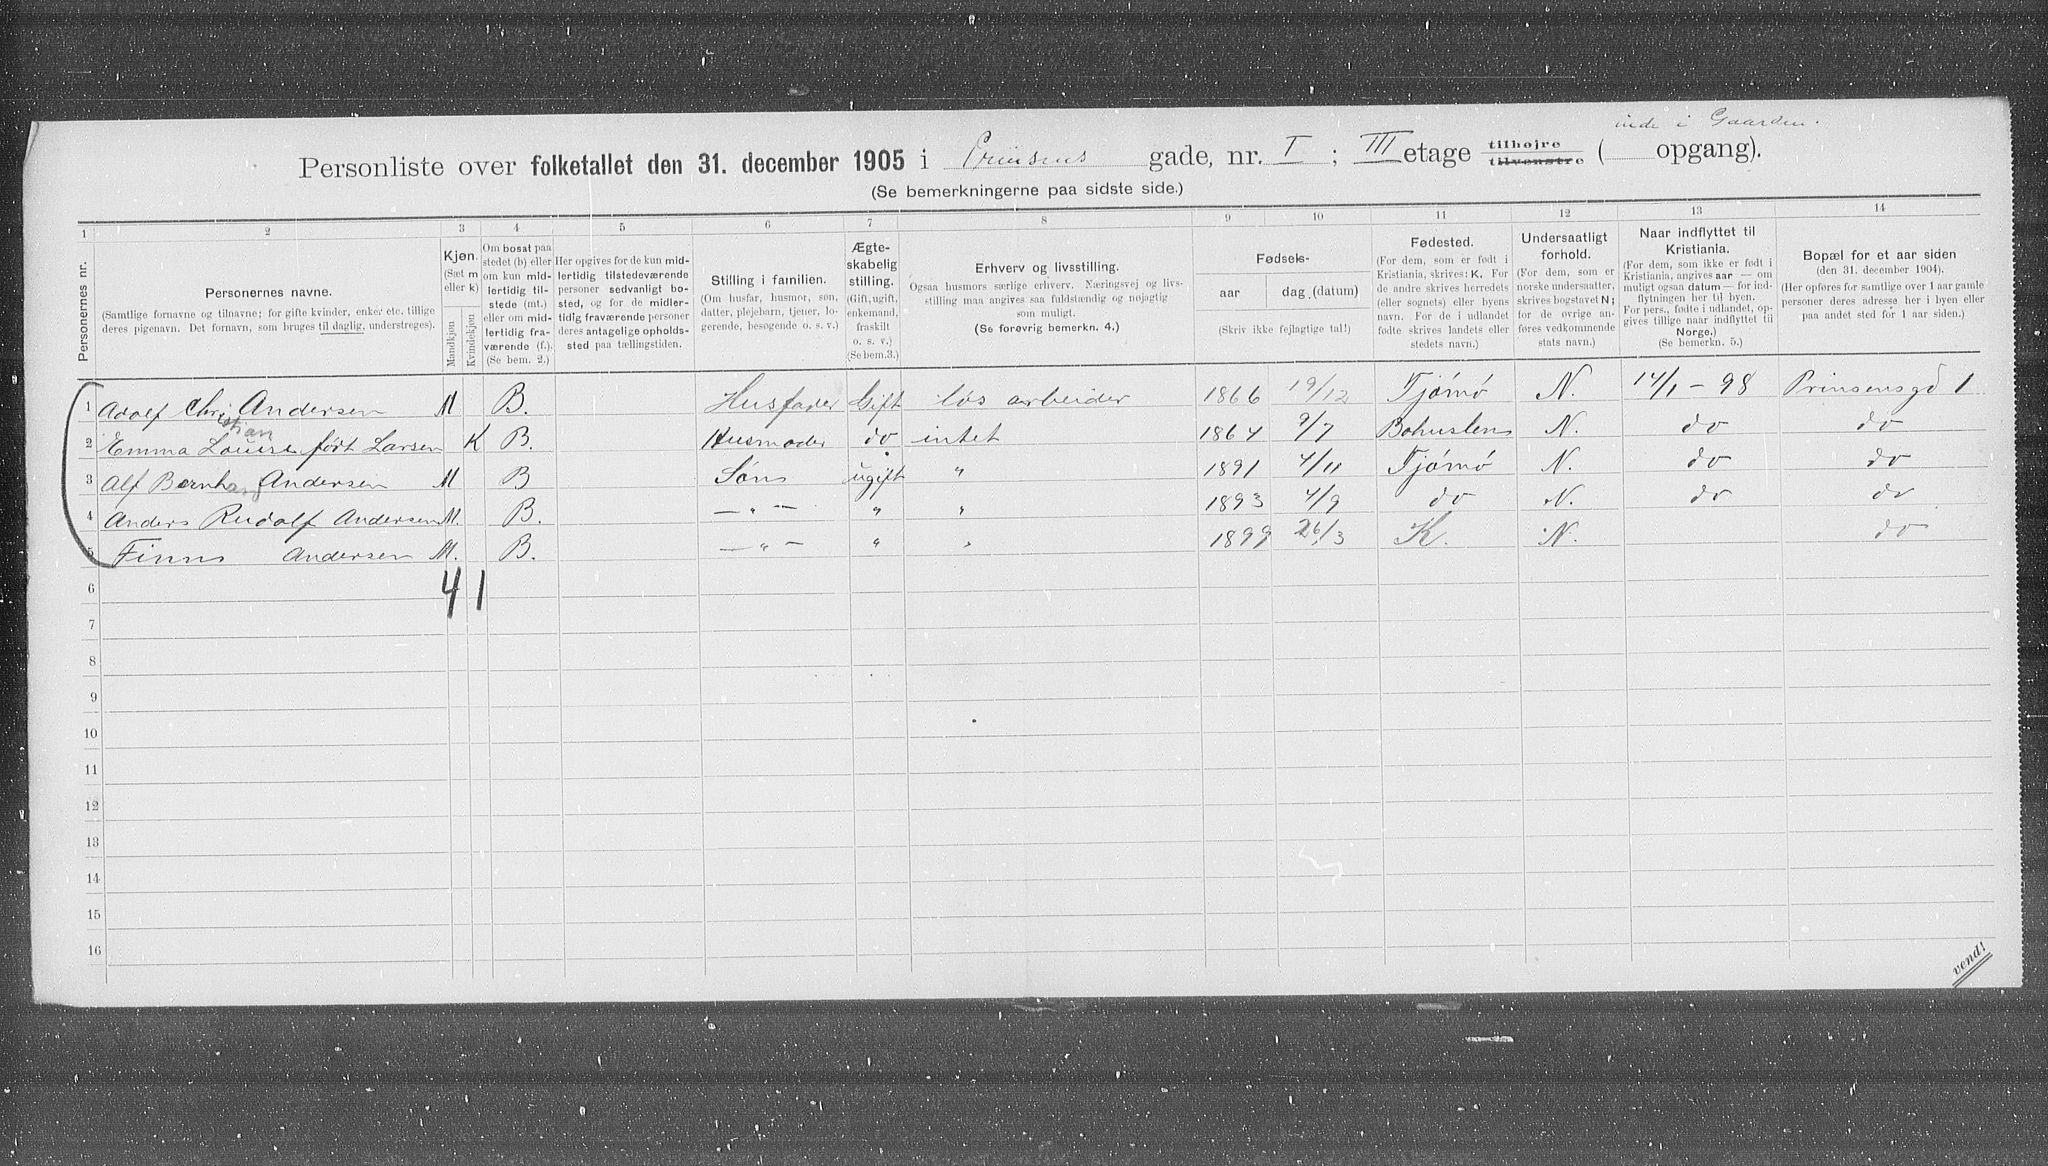 inde i Gaarden.
Personliste over folketallet den 31. december 1905 i Prinsens gade, nr. I ; III etage tilhøjre tilvenstre ( opgang).
(Se bemerkningerne paa sidste side.)
1 2 3 4 5 6 7 8 9 10 11 12 13 14
Personernes nr.
Personernes navne.
(Samtlige fornavne og tilnavne; for gifte kvinder, enker etc. tillige deres pigenavn. Det fornavn, som bruges til daglig, understreges).
Kjøn.
(Sæt m eller k)
Mandkjøn
Kvindekjøn
Om bosat paa stedet (b) eller om kun midlertidig tilstede (mt.) eller om midlertidig fraværende (f.). (Se bem. 2.)
Her opgives for de kun midlertidig tilstedeværende personer sedvanligt bosted, og for de midlertidig fraværende personer deres antagelige opholdssted paa tællingstiden.
Stilling i familien.
(Om husfar, husmor, søn, datter, plejebarn, tjener, logerende, besøgende o. s. v.)
Ægteskabelig stilling.
(Gift, ugift, enkemand, fraskilt o. s. v.)
(Se bem.3.)
Erhverv og livsstilling.
Ogsaa husmors særlige erhverv. Næringsvej og livsstilling maa angives saa fuldstændig og nøjagtig som muligt.
(Se forøvrig bemerkn. 4.)
Fødsels-
aar
dag (datum)
(Skriv ikke fejlagtige tal!)
Fødested.
(For dem, som er født i Kristiania, skrives: K. For de andre skrives herredets (eller sognets) eller byens navn. For de i udlandet fødte skrives landets eller stedets navn.)
Undersaatligt forhold.
(For dem, som er norske undersaatter, skrives bogstavet N; for de øvrige anføres vedkommende stats navn.)
Naar indflyttet til Kristiania.
(For dem, som ikke er født i Kristiania, angives aar — om muligt ogsaa datum — for indflytningen her til byen. For pers., fødte i udlandet, opgives tillige naar indflyttet til Norge.)
(Se bemerkn. 5.)
Bopæl for et aar siden
(den 31. december 1904).
(Her opføres for samtlige over 1 aar gamle personer deres adresse her i byen eller paa andet sted for 1 aar siden.)
1 Adolf Christian Andersen M B. Husfader Gift løs arbeider 1866 19/12 Tjømø N. 14/1 - 98 Prinsensgd 1
2 Emma Louise født Larsen K B. Husmoder do intet 1864 9/7 Bohuslen N. do do
3 Alf Bernhard Andersen M B Søns ugift " 1891 4/11 Tjømø N. do do
4 Anders Rudolf Andersen M. B. — " — " " 1893 4/9 do N. do do
5 Finns Andersen M. B. — " — " " 1899 26/3 K. N. do
4 1
6
7
8
9
10
11
12
13
14
15
16
vend!